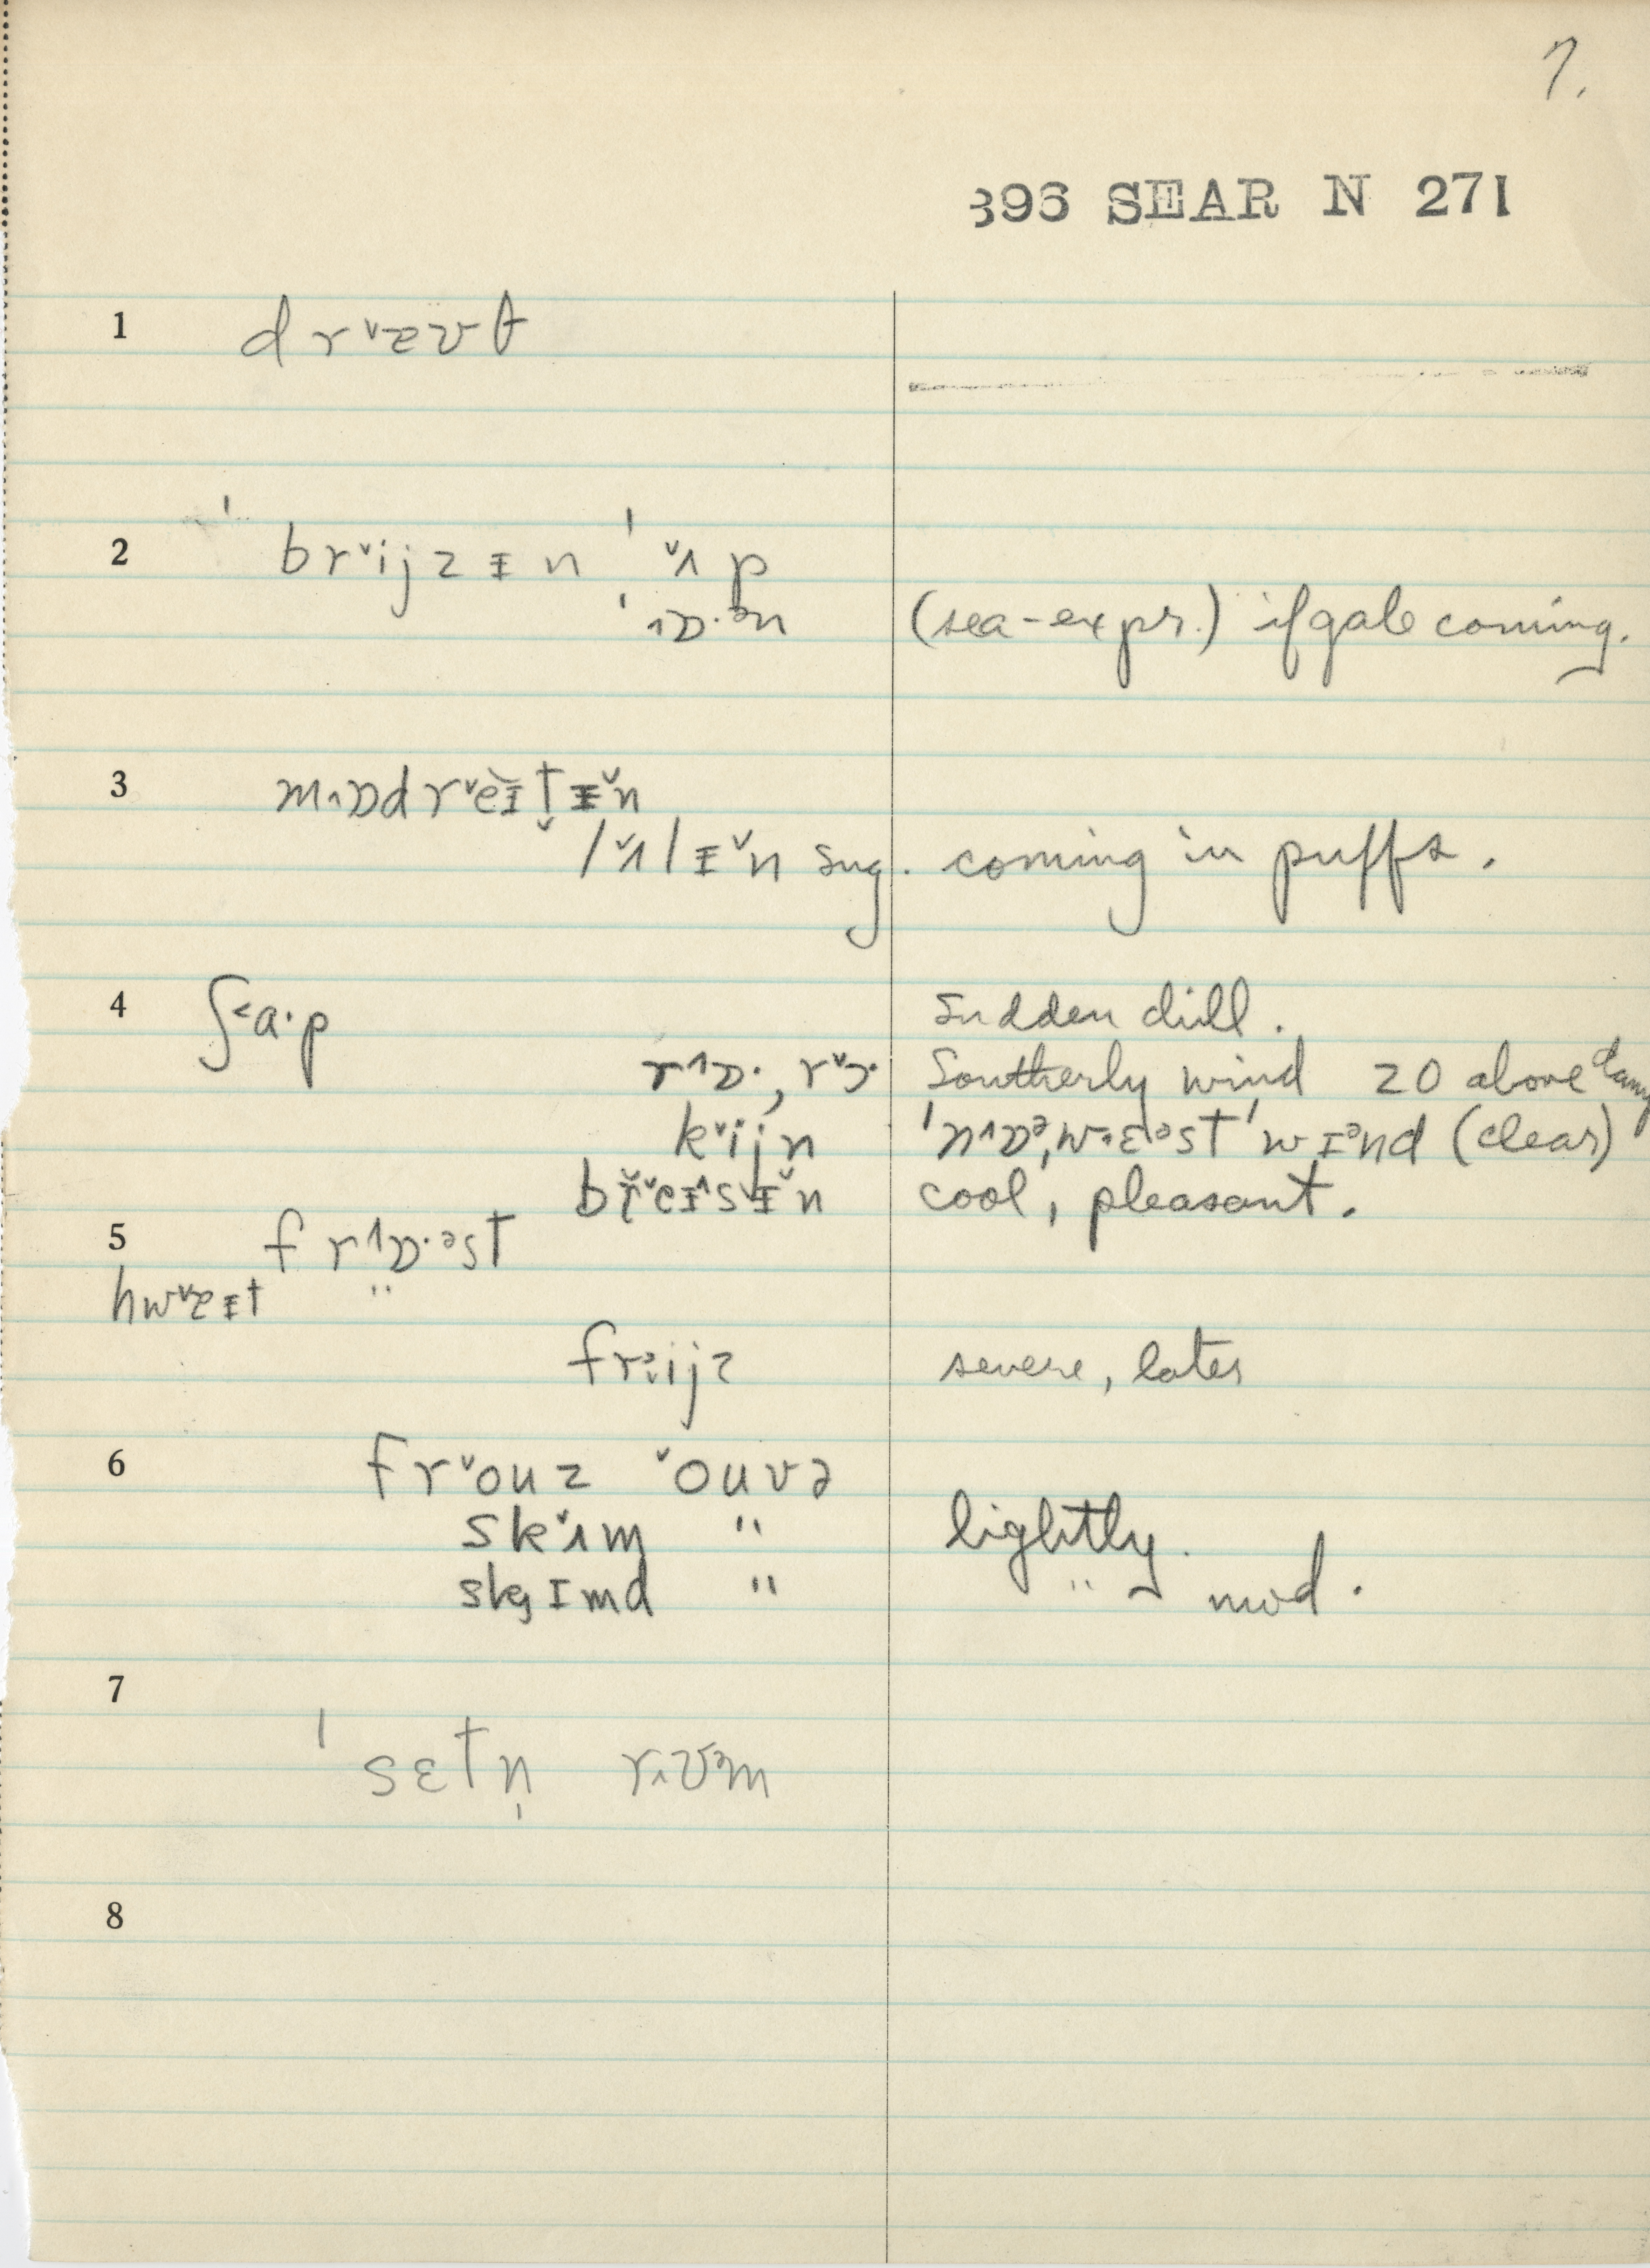 7.
396 SEAR N 271
1 dr˅ævt
2 ˈbr˅ijzɪn ˈ˅ʌp
ˌ˄ɒ·ᵊn (sea-expr.) if gale coming.
3 m˄ɒdr˅eɪt̬ɪ̆n
l˅ʌlɪ̆n sug. coming in puffs.
4 ʃ˂a·p Sudden chill.
r˄ɒ·, r˅ɔ· Southerly wind 20 above damp
k˅ijn ˈn˄ɒᵊˌwɛᵊst ˈwɪᵊnd (clear)
br˅eɪ˄s˅ɪ̆n cool, pleasant.
5 fr˄ɒ·ᵊst
hw˅ɐɪt "
frᵊijz severe, later
6 fr˅ouz ˅ouvə
sk˅ɪm " lightly.
skɪmd " " mod.
7 ˈsɛtn̩ r˄ʊᵊm
8